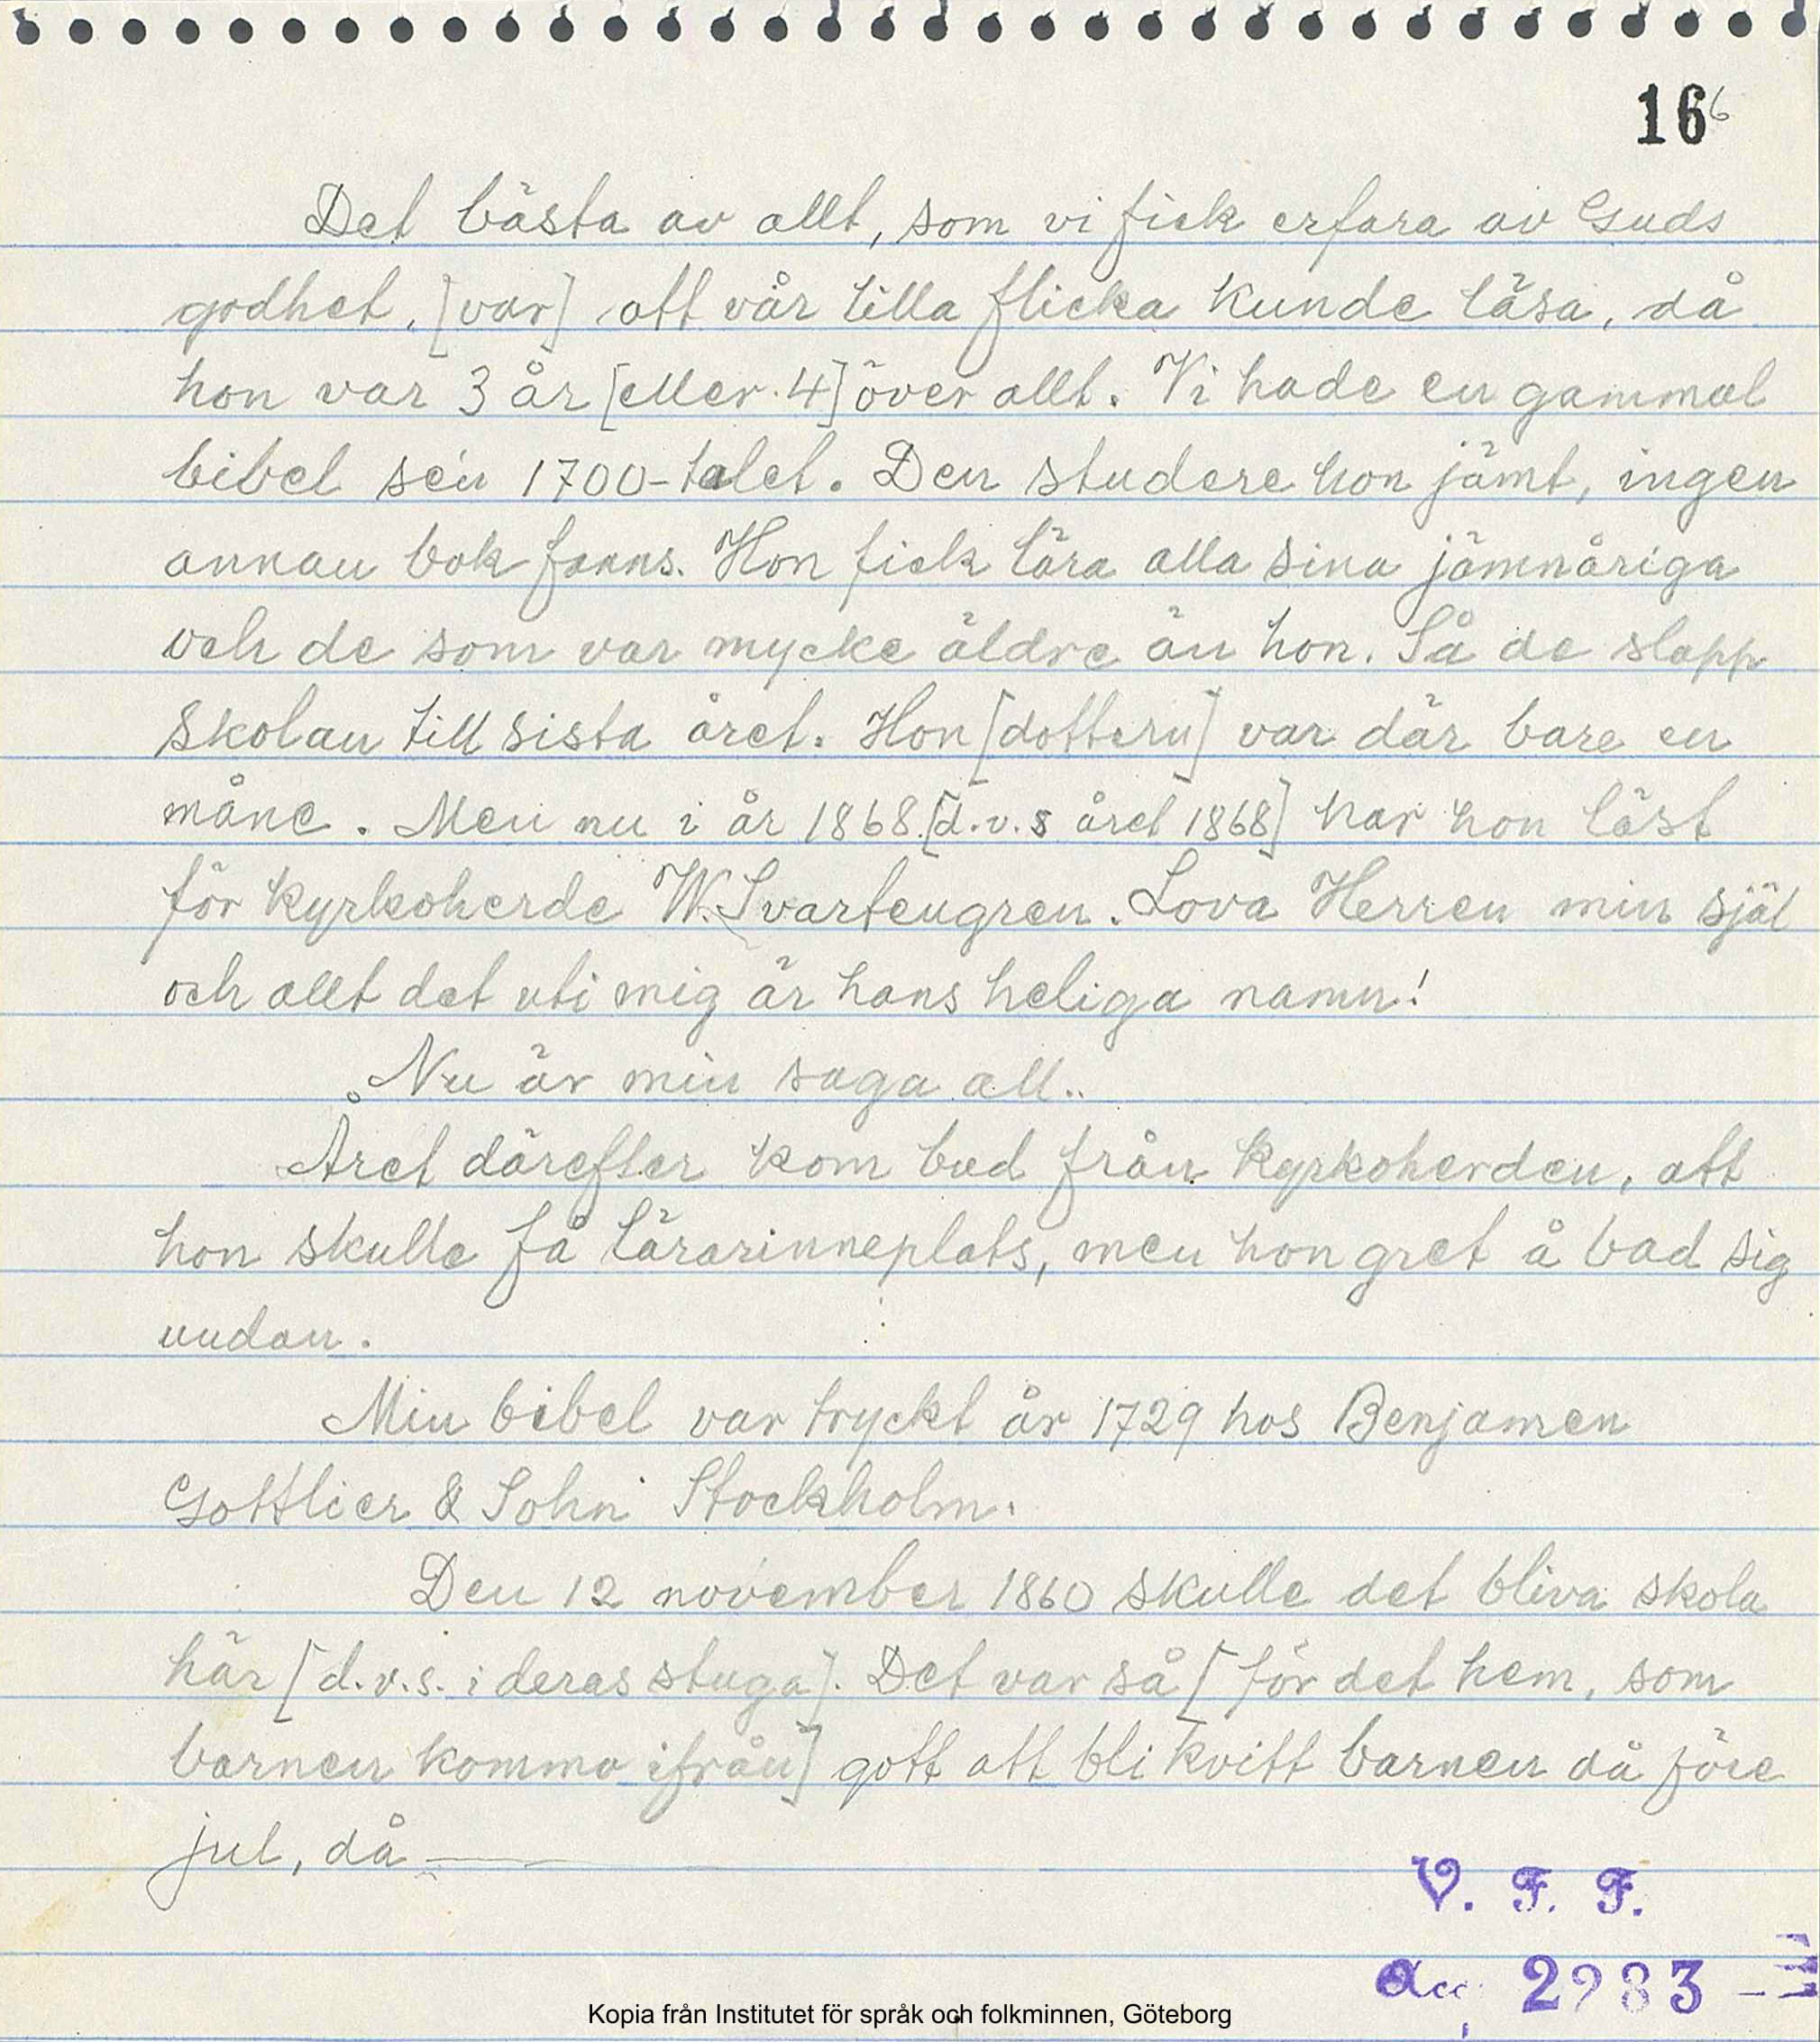 16 6
Det bästa av allt, som vi fick erfara av Guds
godhet, [var] att vår lilla flicka kunde läsa, då
hon var 3 år [eller 4] över allt. Vi hade en gammal
bibel sén 1700-talet. Den studere hon jämt, ingen
annan bok fanns. Hon fick lära alla sina jämnåriga
och de som var mycke äldre än hon. Så de slapp
skolan till sista året. Hon [dottern] var där bare en
måne. Men nu i år 1868 [d.v.s året 1868] har hon läst
för kyrkoherde W. Svartengren. Lova Herren min själ
och allt det uti mig är hans heliga namn!
Nu är min saga all..
Året därefter kom bud från kyrkoherden, att
hon skulle få lärarinneplats, men hon gret å bad sig
undan.
Min bibel var tryckt år 1729 hos Benjamen
Gottlier & Sohn Stockholm.
Den 12 november 1860 skulle det bliva skola
här [d.v.s. i deras stuga]. Det var så [för det hem, som
barnen komma ifrån] gott att bli kvitt barnen då före
jul, då —
V. F. F.
Acc. 2983
Kopia från Institutet för språk och folkminnen, Göteborg